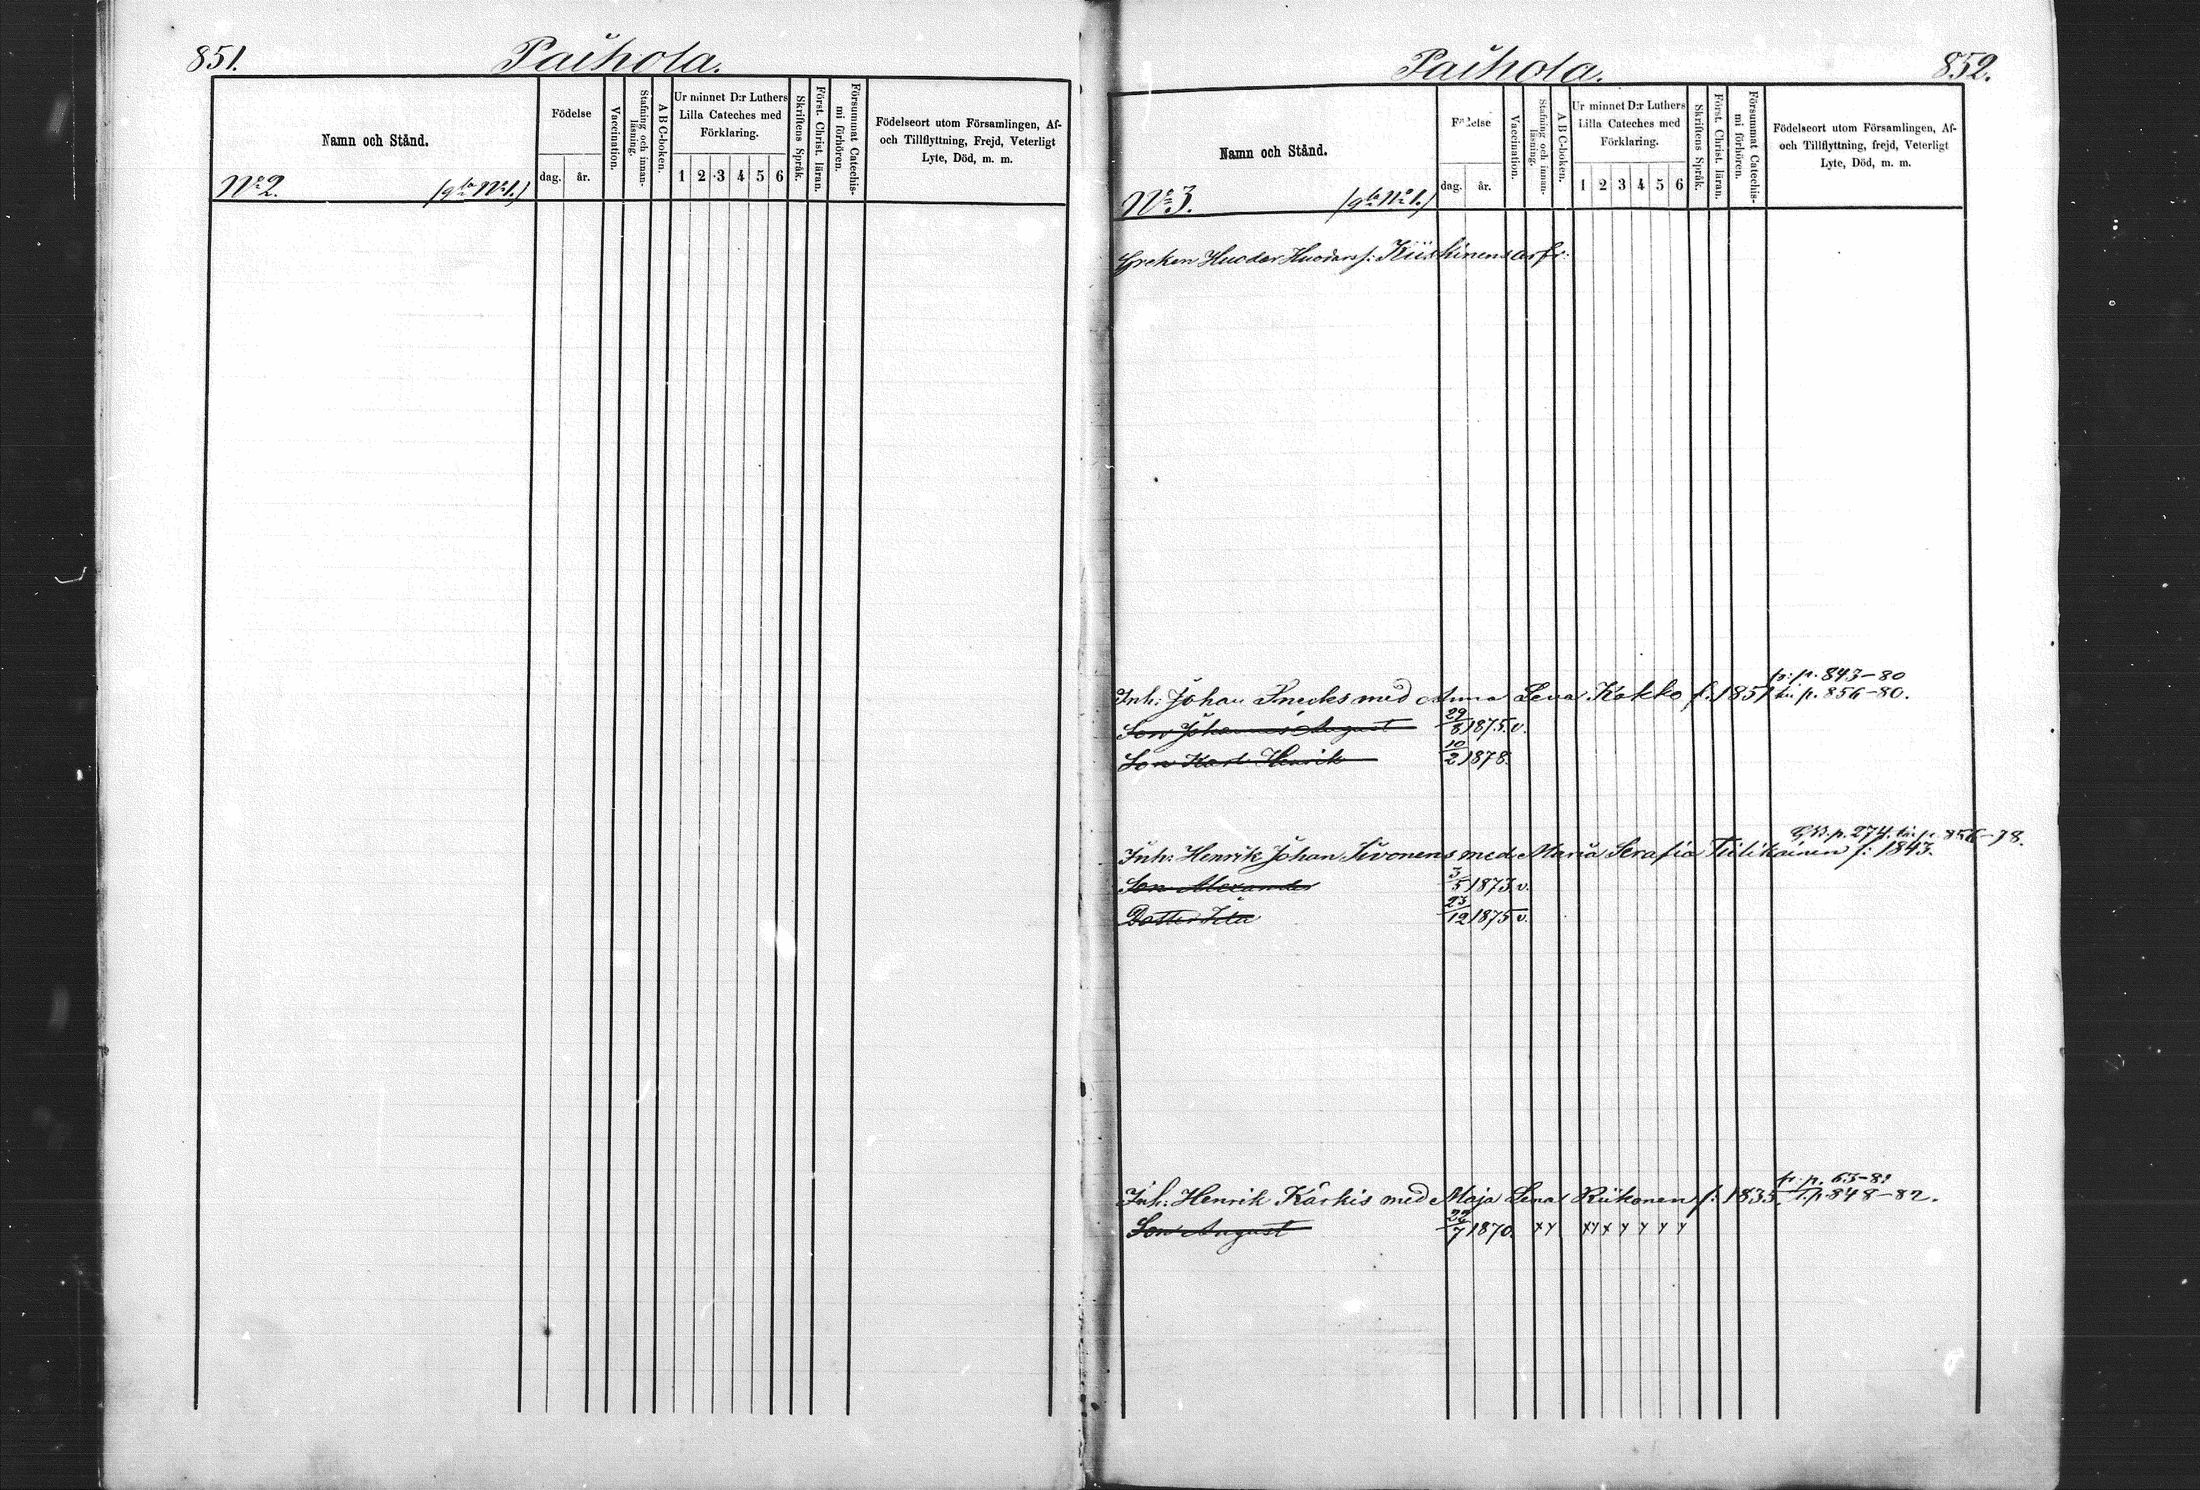 851.
Paihola.
Namn och Stånd.
Födelse
dag.
år.
Vaccination.
Stafning och innan-
läsning.
A B C-boken.
Ur minnet D:r Luthers
Lilla Cateches med
Förklaring.
1 2 3 4 5 6
Skriftens Språk.
Först. Christ. läran.
Försummat Catechis-
mi förhören.
Födelseort utom Församlingen, Af-
och Tillflyttning, Frejd, Veterligt
Lyte, Död, m. m.
No 2.
No 1.)
Paihola.
852.
Namn och Stånd.
Födelse
dag.
år.
Vaccination.
Stafning och innan-
läsning.
A B C-boken.
Ur minnet D:r Luthers
Lilla Cateches med
Förklaring.
1 2 3 4 5 6
Skriftens Språk.
Först. Christ. läran.
Försummat Catechis-
mi förhören.
Födelseort utom Församlingen, Af-
och Tillflyttning, frejd, Veterligt
Lyte, Död, m. m.
No 3.
No 1.)
Greken
fr. p. 843-80
Inh: Johan Snecks med Anna Lena Kokko f: 1851 till p. 856-80.
Son Johannes August 29/8 1875. v.
Son Karl Henrik 10/2 1878.
p. 274. p. 856-78.
Inh: Henrik Johan Sivonens med Maria Serafia Tiilikainen f: 1843.
Son Alexander 3/5 1873 v.
Dotter Ida 23/12 1875 v.
fr. p. 63-82
Inh: Henrik Kärkis med Maja Lena Riikonen f: 1835. t. p. 848-82.
Son August 22/7 1870. x y x y x y y y y